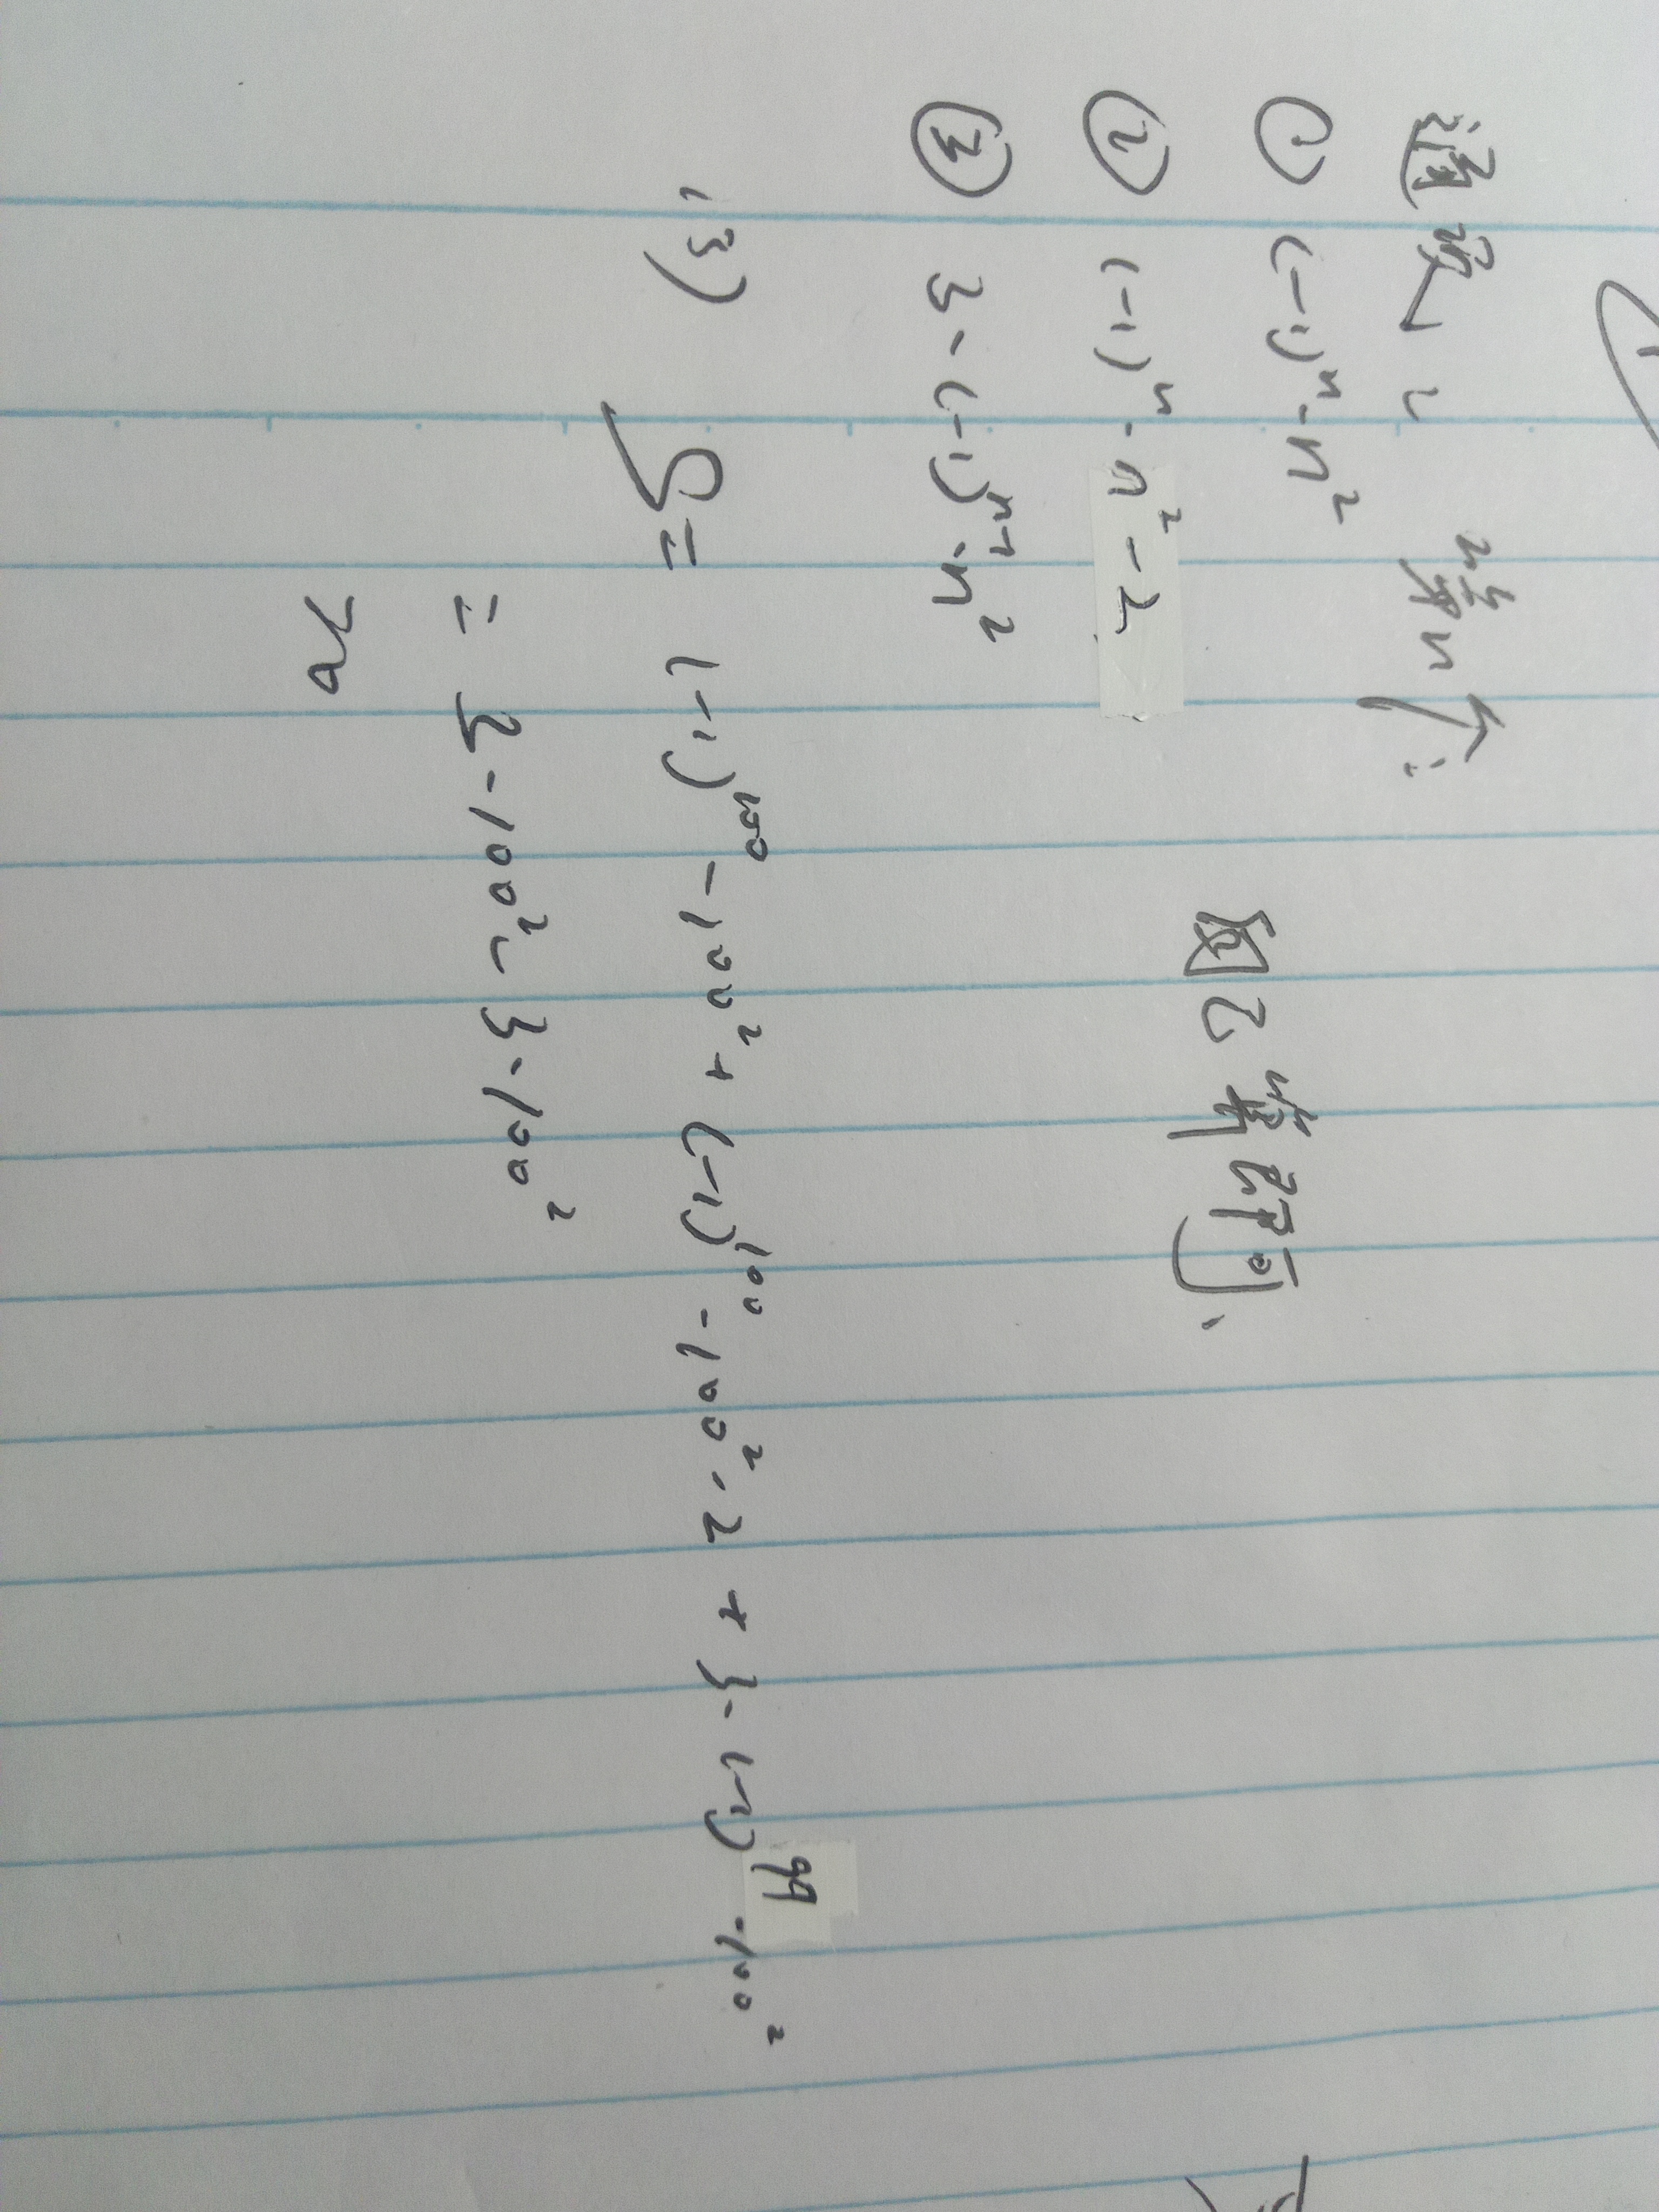 通项：第n个：
① (-1)ⁿ·n²
② (-1)ⁿ·n²-2 即可、
③ 3·(-1)ⁿ⁻¹·n²
(3) S= (-1)¹⁰⁰·100²+(-1)¹⁰⁰·100²·2+3·(-1)⁹⁹·100²
=3·100²-3·100²
=0